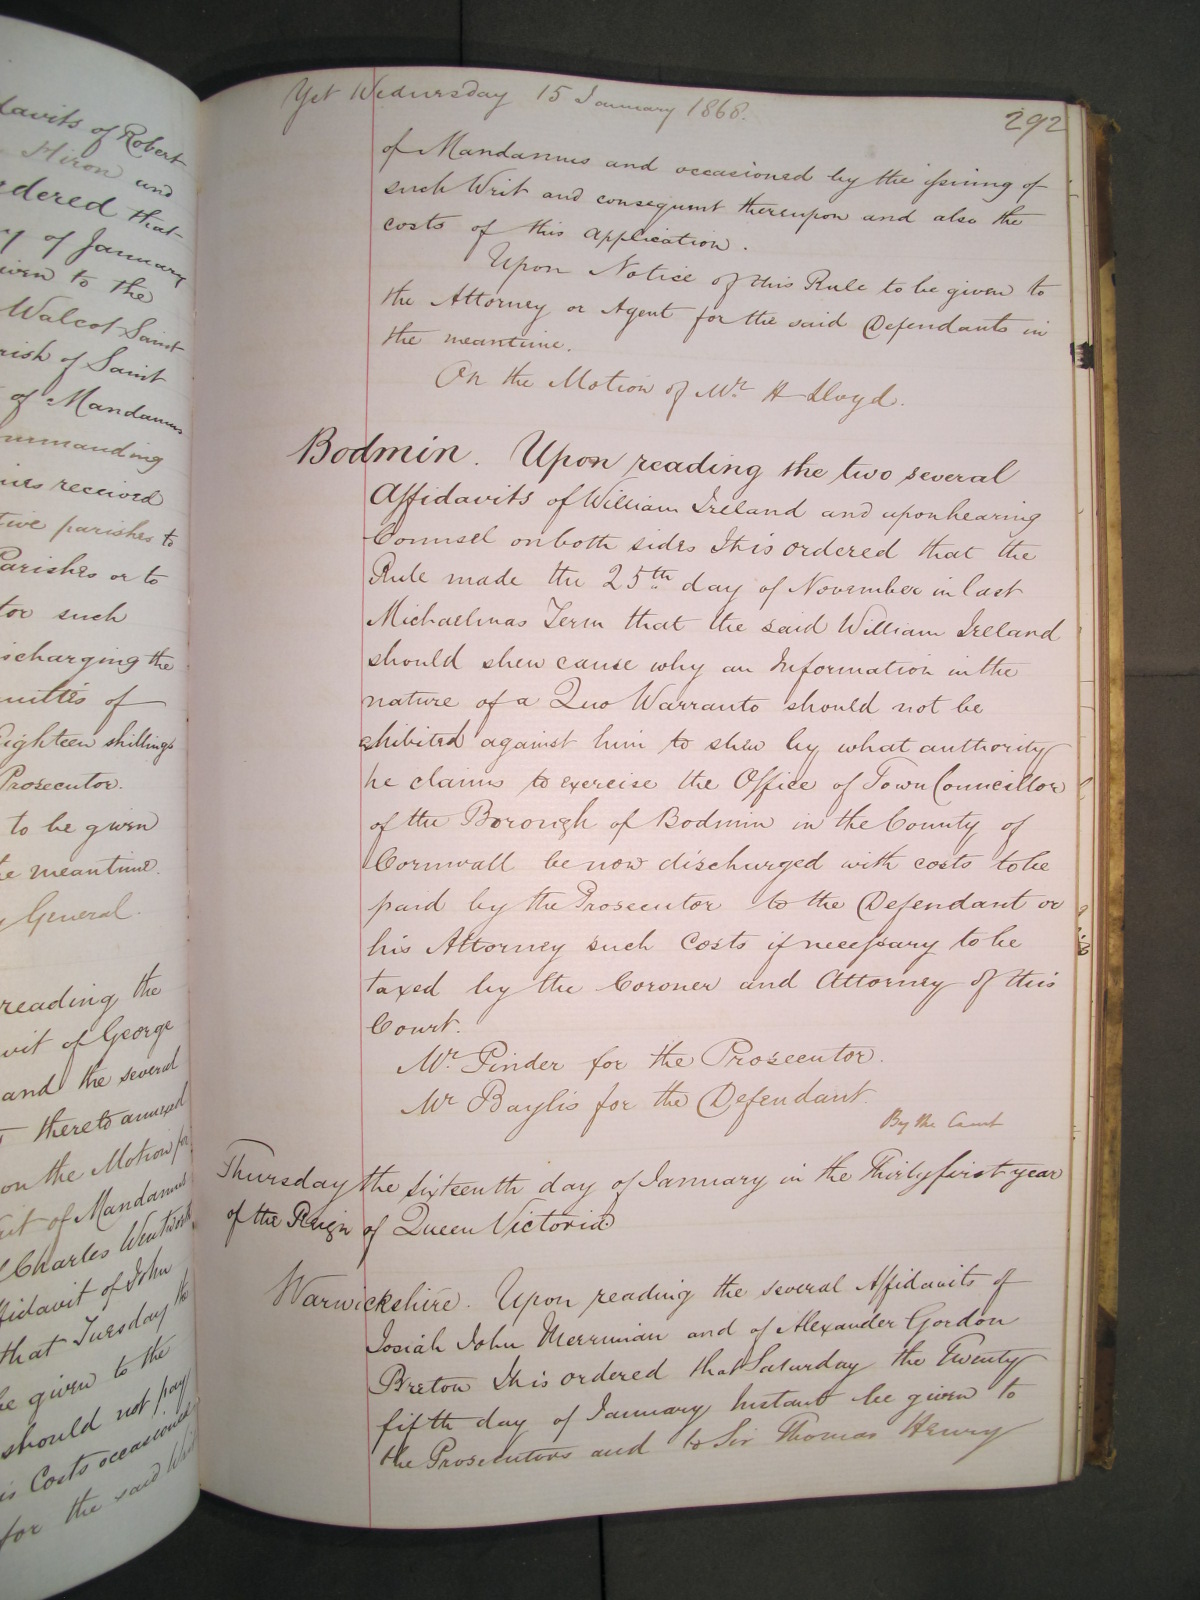 davits of Robert
Hiron and
ordered that
y of January
given to the
Walcot Saint
rish of Saint
of Mandamus
ommanding
nies received
tive parishes to
Parishes or to
for such
ischarging the
mittes of
Eighteen shillings
Prosecutor.
to be given
e meantime.
y General.
reading the
vit of George
and the several
thereto annexed
on the Motion for
rit of Mandamus
Charles Wentworth
ffidavit of John
that Tuesday the
be given to the
should not pay
is Costs occasioned
for the said Writ
Yet Wednesday 15 January 1868.
292
of Mandamus and occasioned by the issuing of
such Writ and consequent thereupon and also the
costs of this application.
Upon Notice of this Rule to be given to
the Attorney or Agent for the said Defendants in
the meantime.
On the Motion of Mr. H Lloyd.
Bodmin. Upon reading the two several
Affidavits of William Ireland and upon hearing
Counsel on both sides It is ordered that the
Rule made the 25th day of November in last
Michaelmas Term that the said William Ireland
should shew cause why an Information in the
nature of a Quo Warranto should not be
exhibited against him to shew by what authority
he claims to exercise the Office of Town Councillor
of the Borough of Bodmin in the County of
Cornwall be now discharged with costs to be
paid by the Prosecutor to the Defendant or
his Attorney such Costs if necessary to be
taxed by the Coroner and Attorney of this
Court.
Mr. Pinder for the Prosecutor.
Mr Baylis for the Defendant.
By the Court
Thursday the sixteenth day of January in the Thirty first year
of the Reign of Queen Victoria
Warwickshire. Upon reading the several Affidavits of
Josiah John Merriman and of Alexander Gordon
Breton It is ordered that Saturday the Twenty
fifth day of January Instant be given to
the Prosecutors and to Sir Thomas Henry